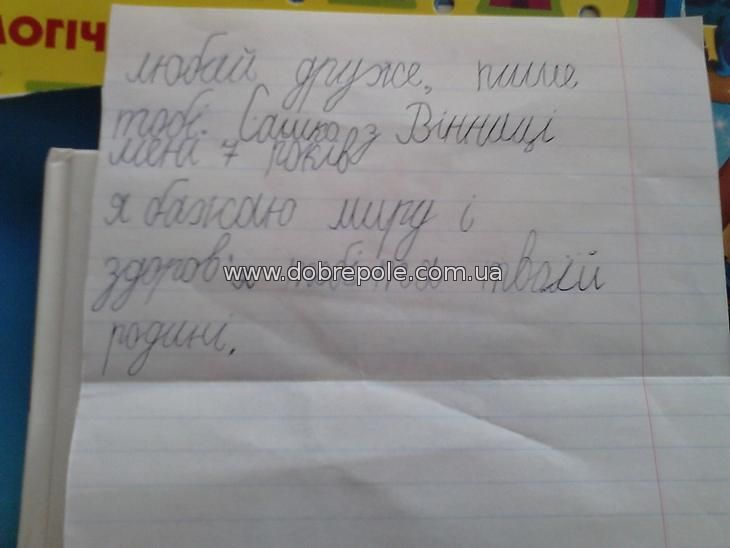 ЛОГІЧ
любий друже, пише
тобі. Сашко з Вінниці
мені 7 років
я бажаю миру і
здоров'я тобі та твоїй
www.dobrepole.com.ua
родині.